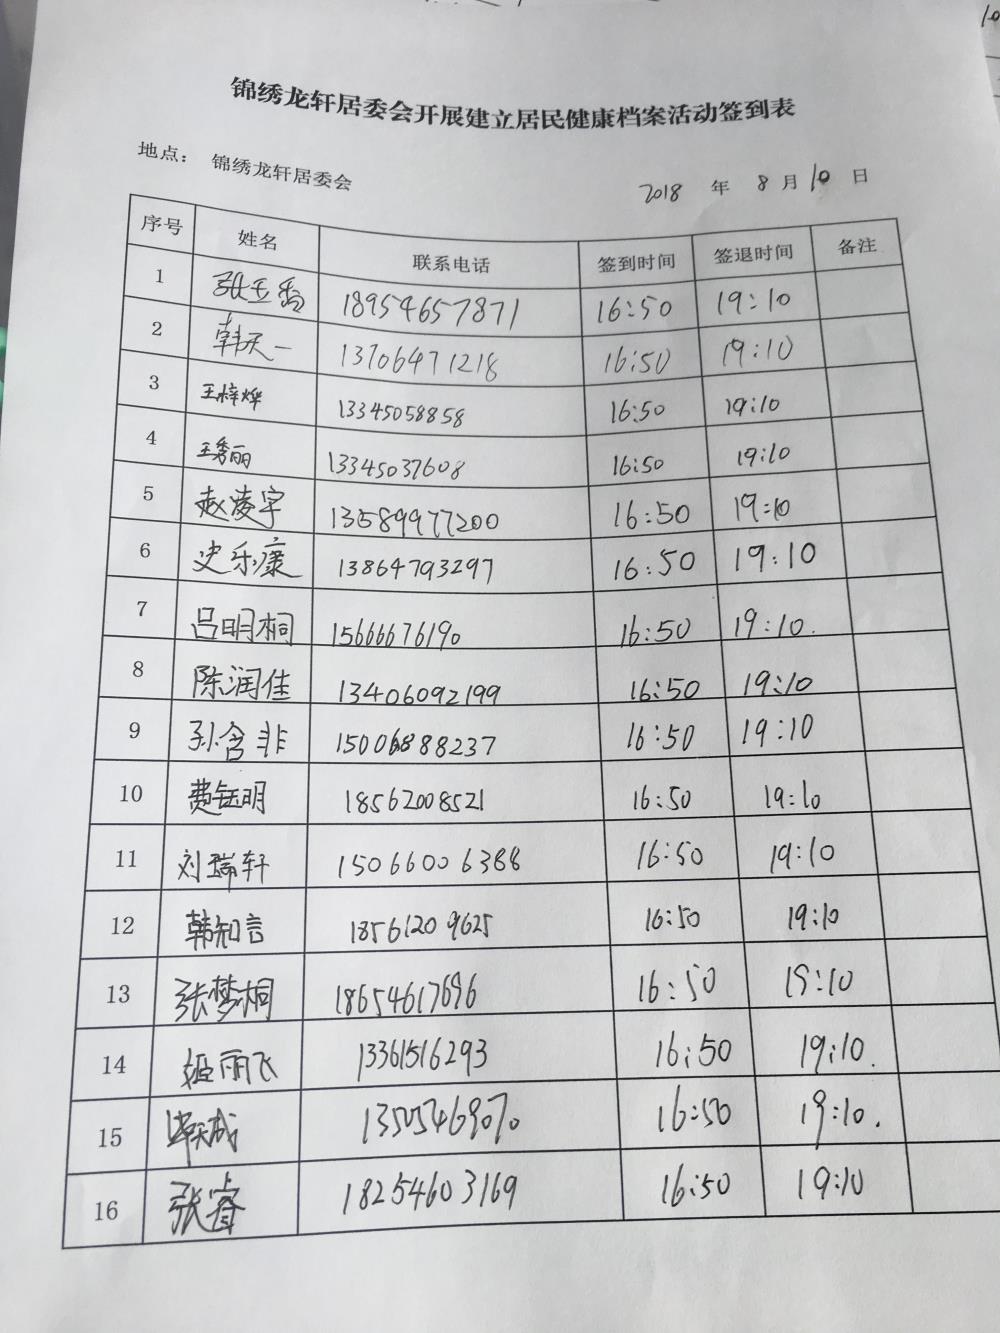 锦绣龙轩居委会开展建立居民健康档案活动签到表
地点： 锦绣龙轩居委会
2018 年 8 月 10 日
序号 姓名 联系电话 签到时间 签退时间 备注
1 张玉香 18954657871 16:50 19:10
2 韩天一 13706471218 16:50 19:10
3 王梓烨 13345058858 16:50 19:10
4 王秀丽 13345037608 16:50 19:10
5 赵凌宇 13589977200 16:50 19:10
6 史乐康 13864793297 16:50 19:10
7 吕明桐 15666676190 16:50 19:10.
8 陈润佳 13406092199 16:50 19:10
9 孙含非 15006888237 16:50 19:10
10 费钰明 18562008521 16:50 19:10
11 刘瑞轩 15066006388 16:50 19:10
12 韩知言 18561209625 16:50 19:10
13 张梦桐 18654617696 16:50 19:10
14 姬丽飞 13361516293 16:50 19:10.
15 13505469070 16:50 19:10.
16 张睿 18254603169 16:50 19:10
10